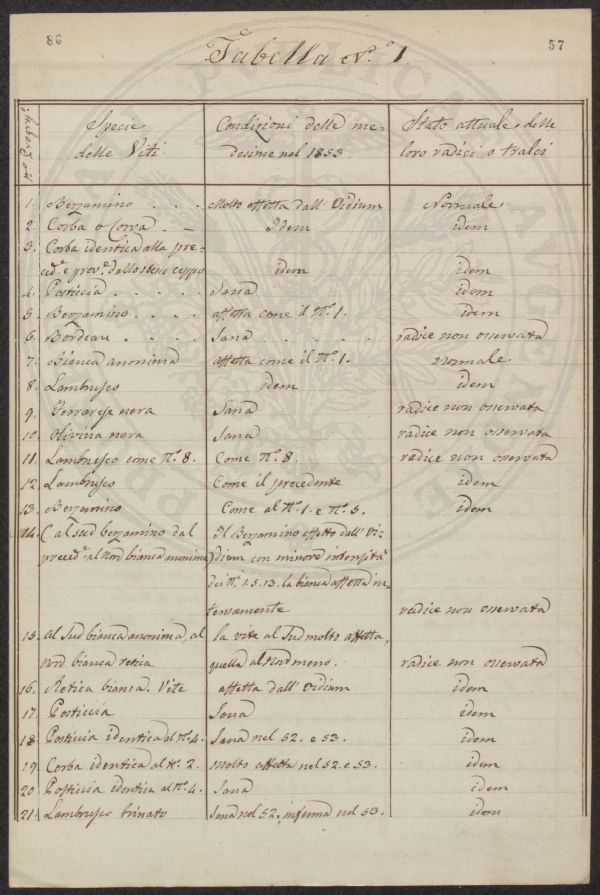 86
57
Tabella N.º 1.
Specie delle Viti
Condizioni delle medecime nel 1853
Stato attuale delle loro radici o tralci
1. Berzamino . . . Molto affetta dall' Oidium Normale
2. Corba o Corva . — Idem idem
3. Corba identica alla pre-
ced.e e prov.e dallo stesso ceppo idem idem
4. Posticcia . . . . . Sana idem
5. Berzamino . . . . affetta come il N.º 1. idem
6. Bordeau . . . . Sana . . . . . . radice non osservata
7. Bianca anonima affetta come il N.º 1. normale.
8. Lambrusco idem idem
9. Ferrarese nera Sana radice non osservata
10. Olivina nera Sana radice non osservata
11. Lambrusco come N.º 8. Come N.º 8. radice non osservata
12. Lambrusco Come il precedente idem
13. Berzamino Come al N.º 1. e N.º 5. idem
14. (al sud berzamino dal Il Berzamino affetto dall' Oi-
preced.e al Nord bianca anonima) dium con minore intensità
dei N.i 1. 5. 13. la bianca affetta in-
tensamente radice non osservata
15. al Sud bianca anonima, al la vite al Sud molto affetta,
nord bianca retica quella al Nord meno. radice non osservata
16. Retica bianca. Vite affetta dall' Oidium idem
17. Posticcia Sana idem
18. Posticcia identica al N.º 4. Sana nel 52. e 53. idem
19. Corba identica al N.º 2. molto affetta nel 52. e 53. idem
20. Posticcia identica al N.º 4. Sana idem
21. Lambrusco trinato Sana nel 52, inferma nel 53. idem